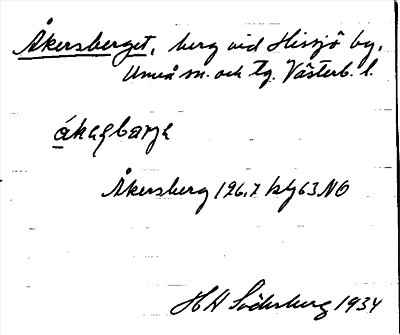 Åkersberget, berg vid Hissjö by,
Umeå sn. och tg. Västerb. l.
Åkersberg 196,7 bl 63 NO
H H Söderberg 1934